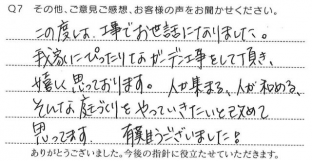 Q7 その他、ご意見ご感想、お客様の声をお聞かせください。
この度は、工事でお世話になりました。
我家にぴったりなガーデン工事をして頂き、
嬉しく思っております。人が集まる、人が和める、
そんな庭づくりをやっていきたいと改めて
思ってます。有難うございました!
ありがとうございました。今後の指針に役立たせていただきます。